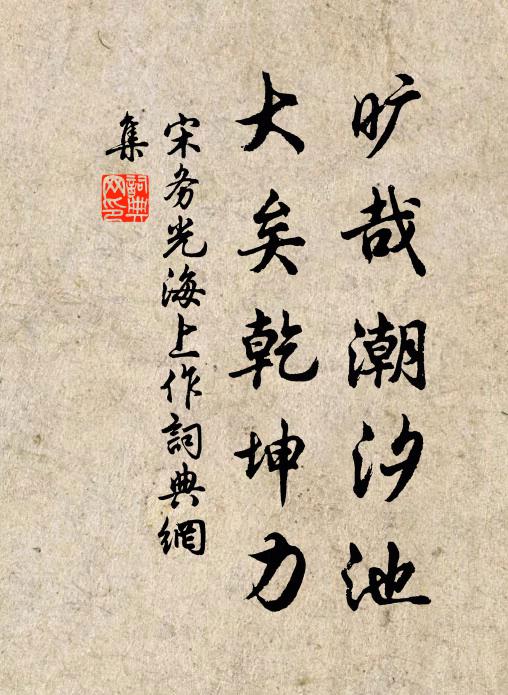 旷哉潮汐池
大矣乾坤力
宋务光海上作詞典網
集
詞典
网印